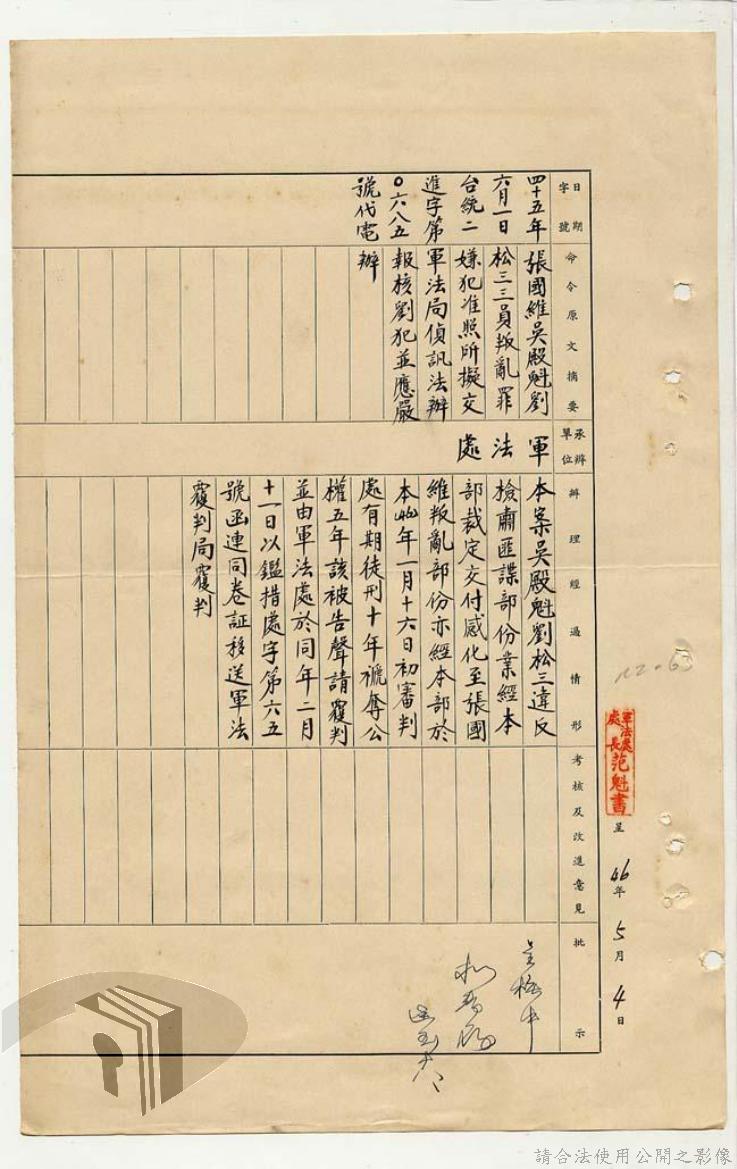 軍法處
處長 范魁書 呈 46年5月4日
日期
字號
四十五年
六月一日
台統二
進字第
〇六八五
號代電
命令原文摘要
張國維吳殿魁劉
松三三員叛亂罪
嫌犯准照所擬交
軍法局偵訊法辦
報核劉犯並應嚴
辦
承辦
單位
軍法處
辦理經過情形
本案吳殿魁劉松三違反
檢肅匪諜部份業經本
部裁定交付感化至張國
維叛亂部份亦經本部於
本46年一月十六日初審判
處有期徒刑十年褫奪公
權五年該被告聲請覆判
並由軍法處於同年二月
十一日以鑑措處字第六五
號函連同卷証移送軍法
覆判局覆判
考核及改進意見
批示
請合法使用公開之影像